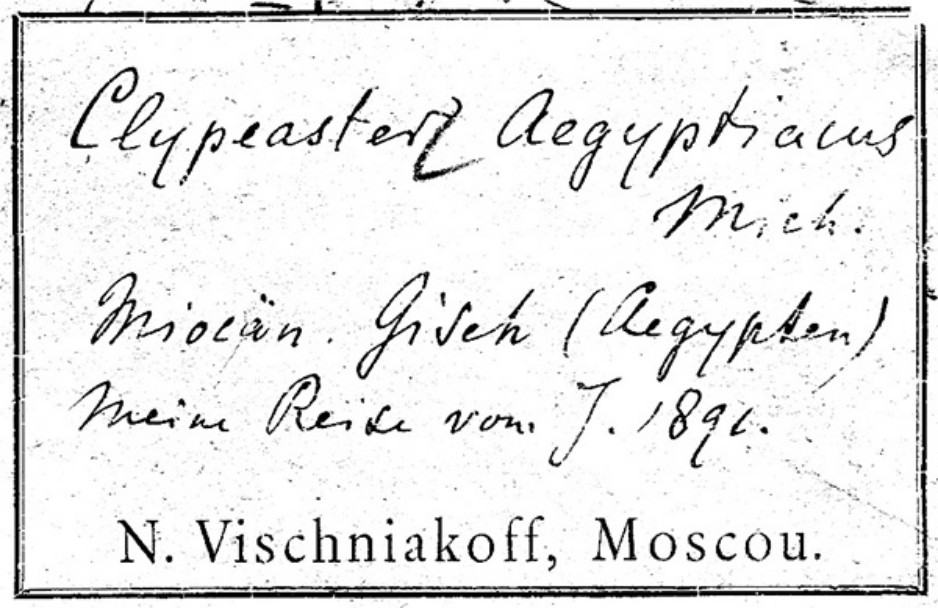 Clypeaster Aegyptiacus
Mich.
Miocän. Giseh (Aegypten)
Meine Reise vom J. 1891.
N. Vischniakoff, Moscou.